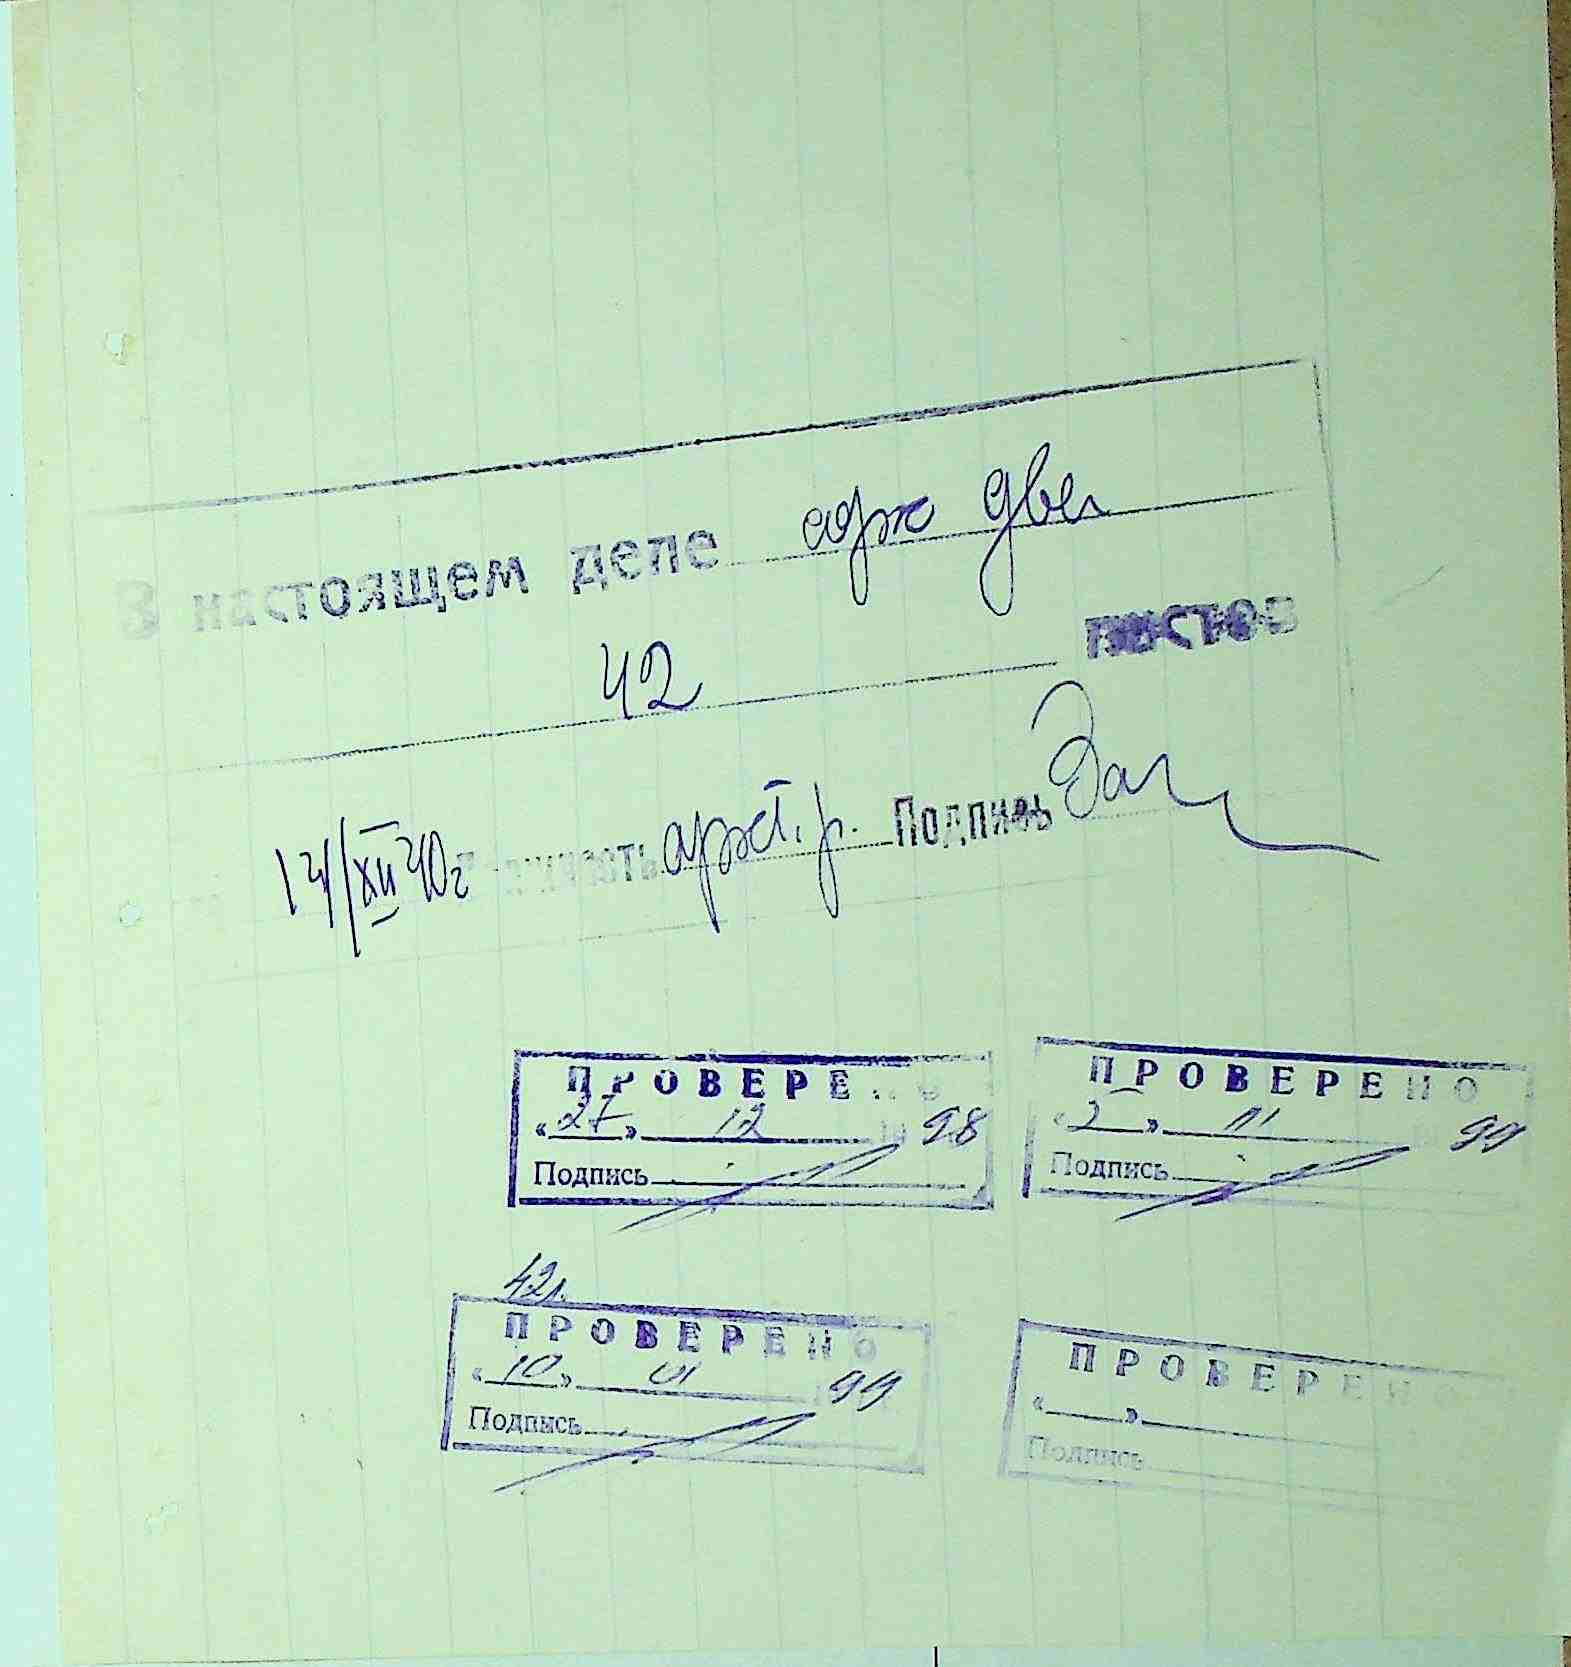 В настоящем деле сорок две
42 листов
14/XII 70г Должность архт. р. Подпись
ПРОВЕРЕНО
«27» 12 98
Подпись
ПРОВЕРЕНО
«2» 01 99
Подпись
42л.
ПРОВЕРЕНО
«10» 01 99
Подпись
ПРОВЕРЕНО
« »
Подпись